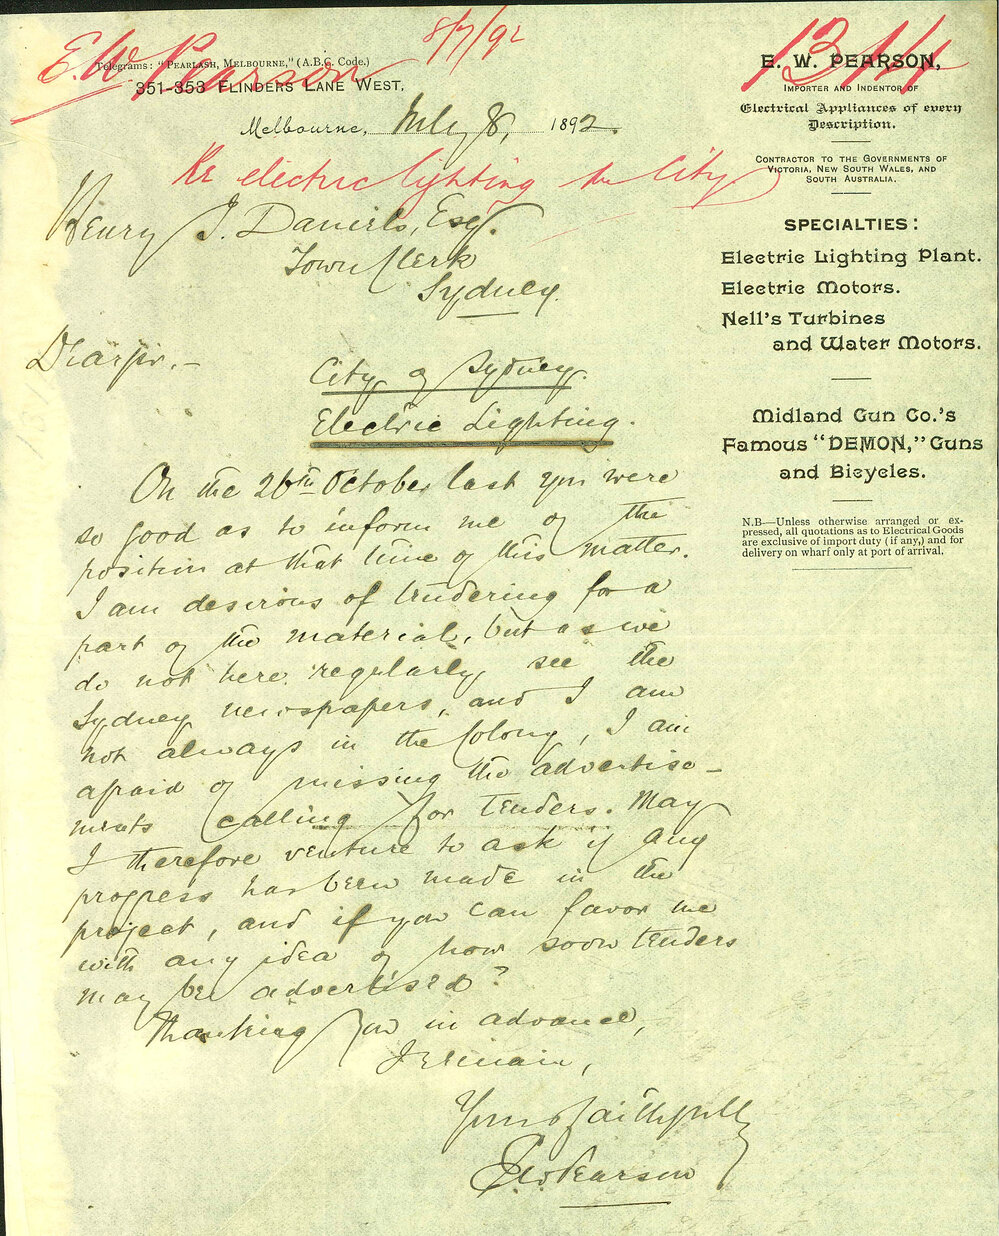 E. W. Pearson
8/7/92
Telegrams: "Pearlash, Melbourne," (A.B.C. Code.)
351-353 Flinders Lane West.
Melbourne, July 8, 1892.
Re electric lighting the City
Henry J. Daniels, Esq.
Town Clerk
Sydney.
Dear Sir,-
City of Sydney.
Electric Lighting.
On the 26th October last you were
so good as to inform me of the
position at that time of this matter.
I am desirous of tendering for a
part of the material, but as we
do not here regularly see the
Sydney newspapers, and I am
not always in the Colony, I am
afraid of missing the advertise-
ments calling for tenders. May
I therefore venture to ask if any
progress has been made in the
project, and if you can favor me
with any idea of how soon tenders
may be advertised?
Thanking you in advance,
I remain,
Yours faithfully
E W Pearson
E. W. PEARSON,
Importer and Indentor of
Electrical Appliances of every
Description.
Contractor to the Governments of
Victoria, New South Wales, and
South Australia.
SPECIALTIES:
Electric Lighting Plant.
Electric Motors.
Nell's Turbines
and Water Motors.
Midland Gun Co.'s
Famous "DEMON," Guns
and Bicycles.
N.B—Unless otherwise arranged or ex-
pressed, all quotations as to Electrical Goods
are exclusive of import duty (if any,) and for
delivery on wharf only at port of arrival.